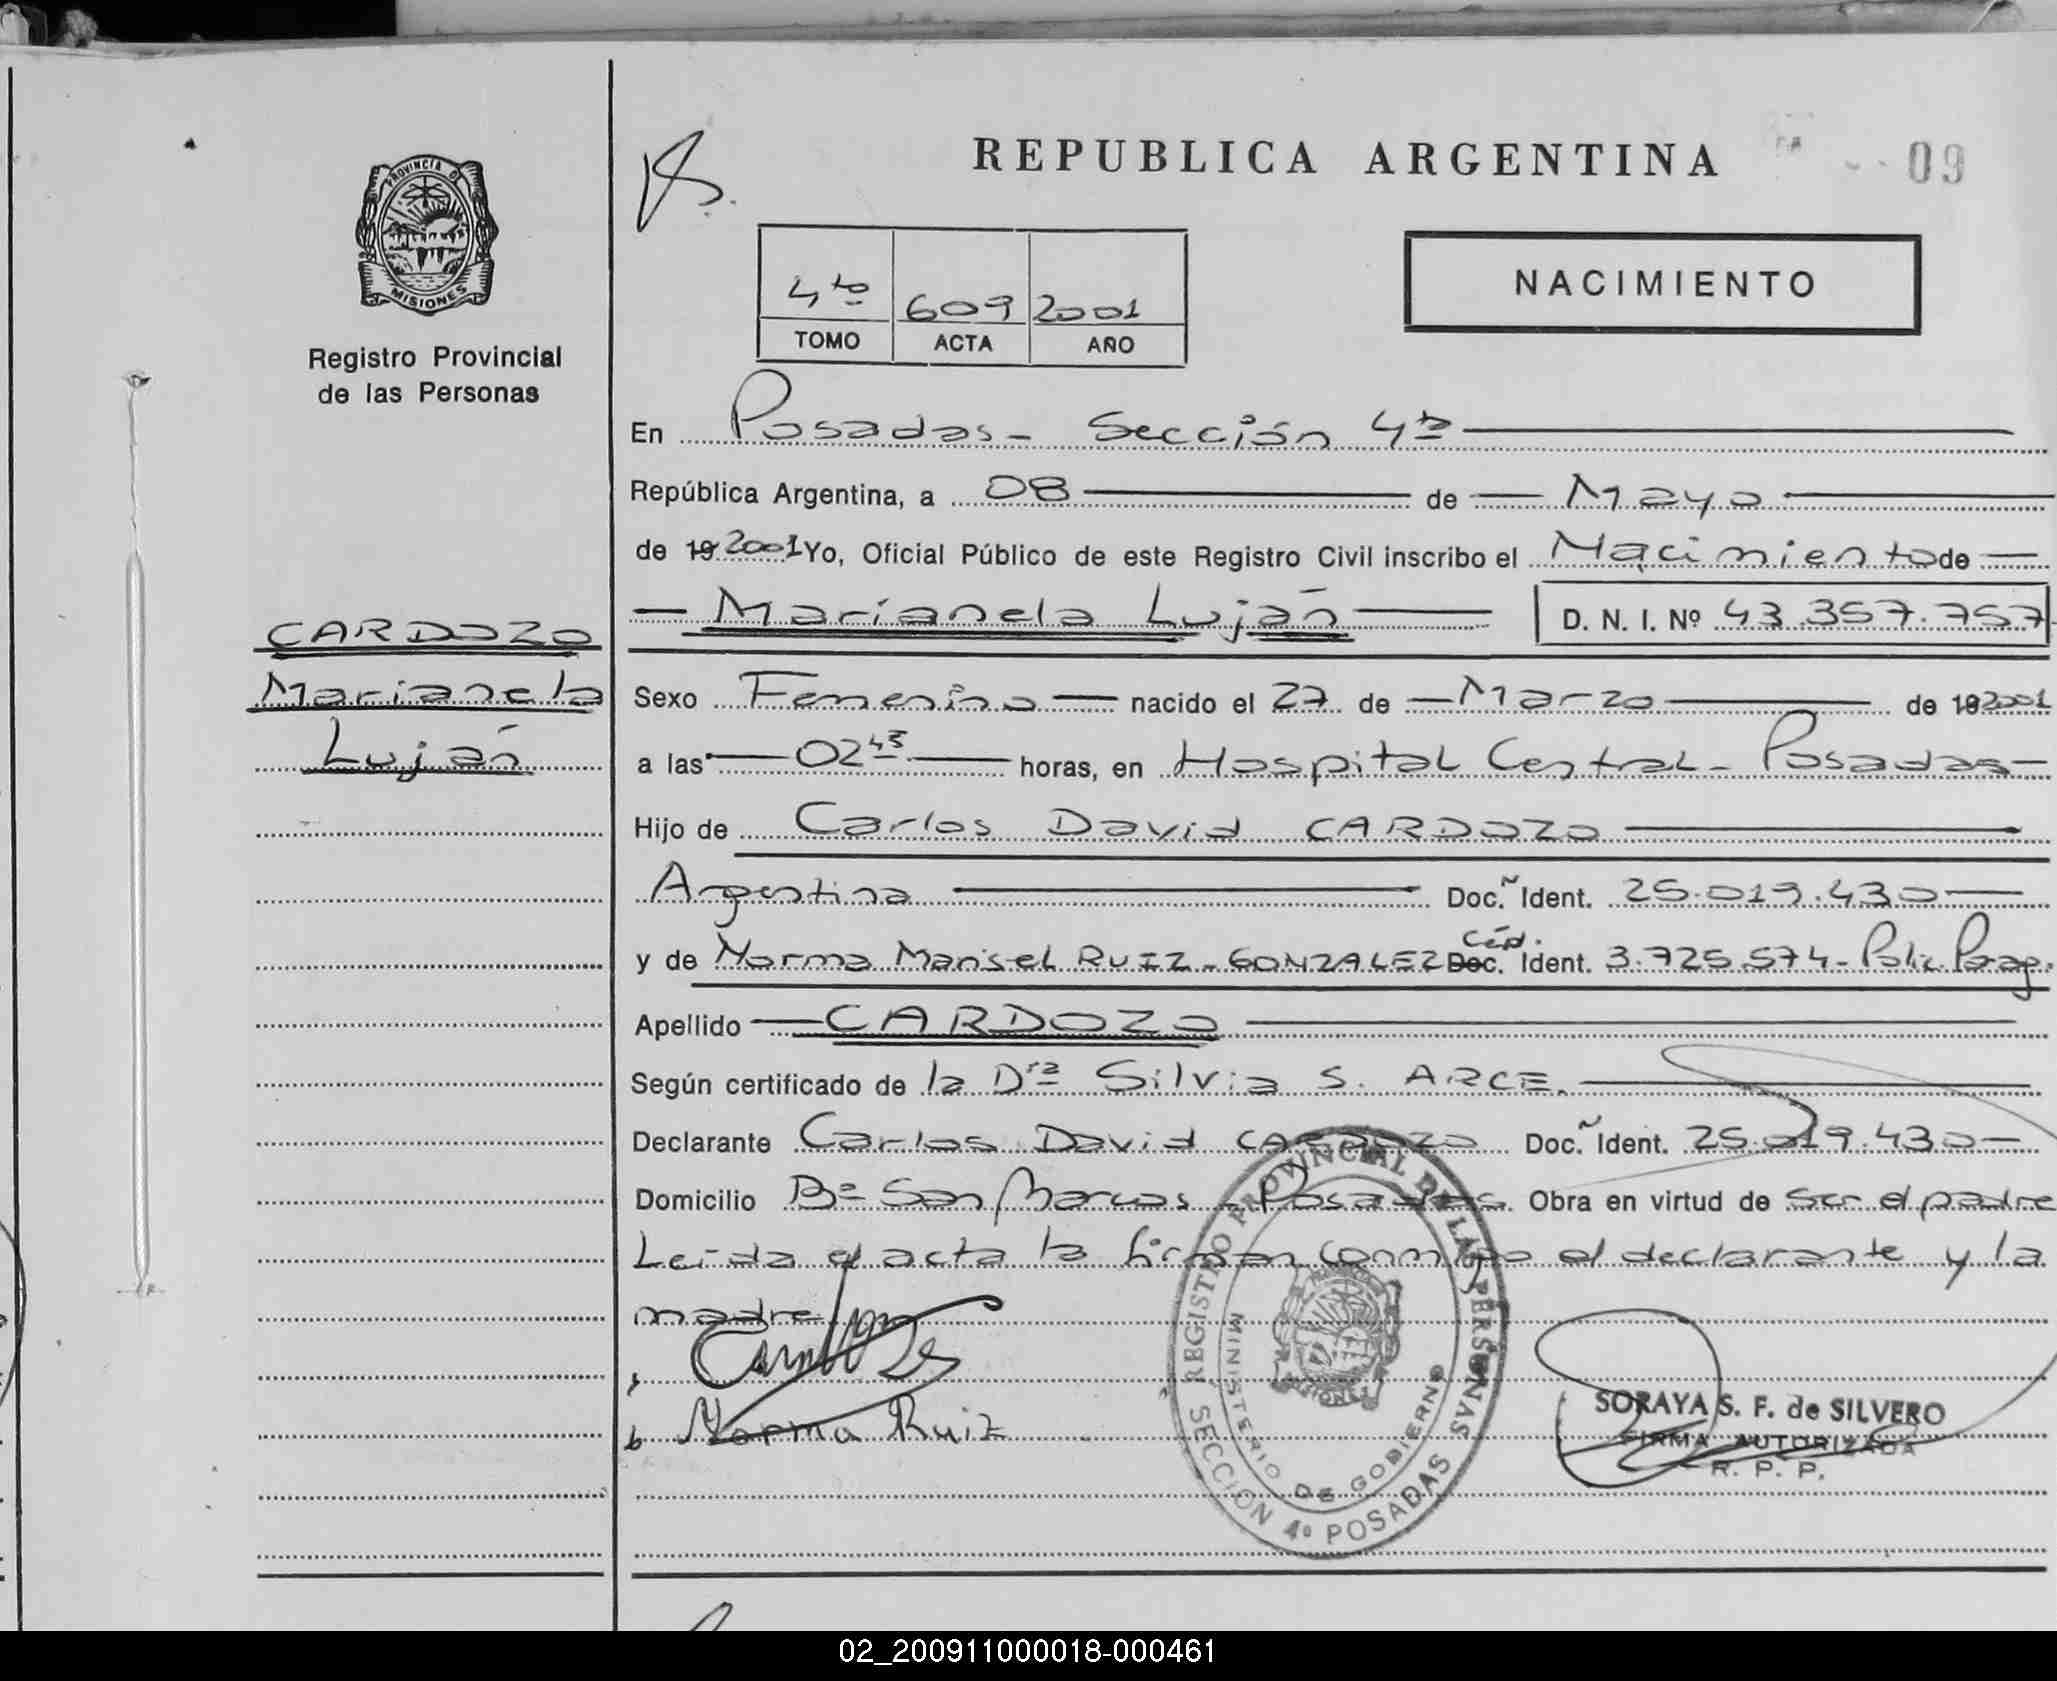 REPUBLICA ARGENTINA
09
PROVINCIA DE
MISIONES
Registro Provincial
de las Personas
4to 609 2001
TOMO ACTA AÑO
NACIMIENTO
En Posadas - Sección 4ta
República Argentina, a 08 de Mayo
de 19 2001 Yo, Oficial Público de este Registro Civil inscribo el Nacimiento de
Marianela Luján D. N. I. Nº 43.357.757
CARDOZO
Marianela
Luján
Sexo Femenino nacido el 27 de Marzo de 19 2001
a las 02 45 horas, en Hospital Central - Posadas
Hijo de Carlos David CARDOZO
Argentina Doc. Ident. 25.019.430
y de Norma Marisel RUIZ - GONZALEZ Doc. Céd. Ident. 3.725.574 - Polic. Parag.
Apellido CARDOZO
Según certificado de la Dra Silvia S. ARCE.
Declarante Carlos David CARDOZO Doc. Ident. 25.019.430
Domicilio Bº San Marcos - Posadas. Obra en virtud de ser el padre
Leída el acta la firman conmigo el declarante y la
madre
Norma Ruiz
REGISTRO PROVINCIAL DE LAS PERSONAS
MINISTERIO DE GOBIERNO
SECCION 4º POSADAS
MISIONES
SORAYA S. F. de SILVERO
FIRMA AUTORIZADA
R. P. P.
02_200911000018-000461